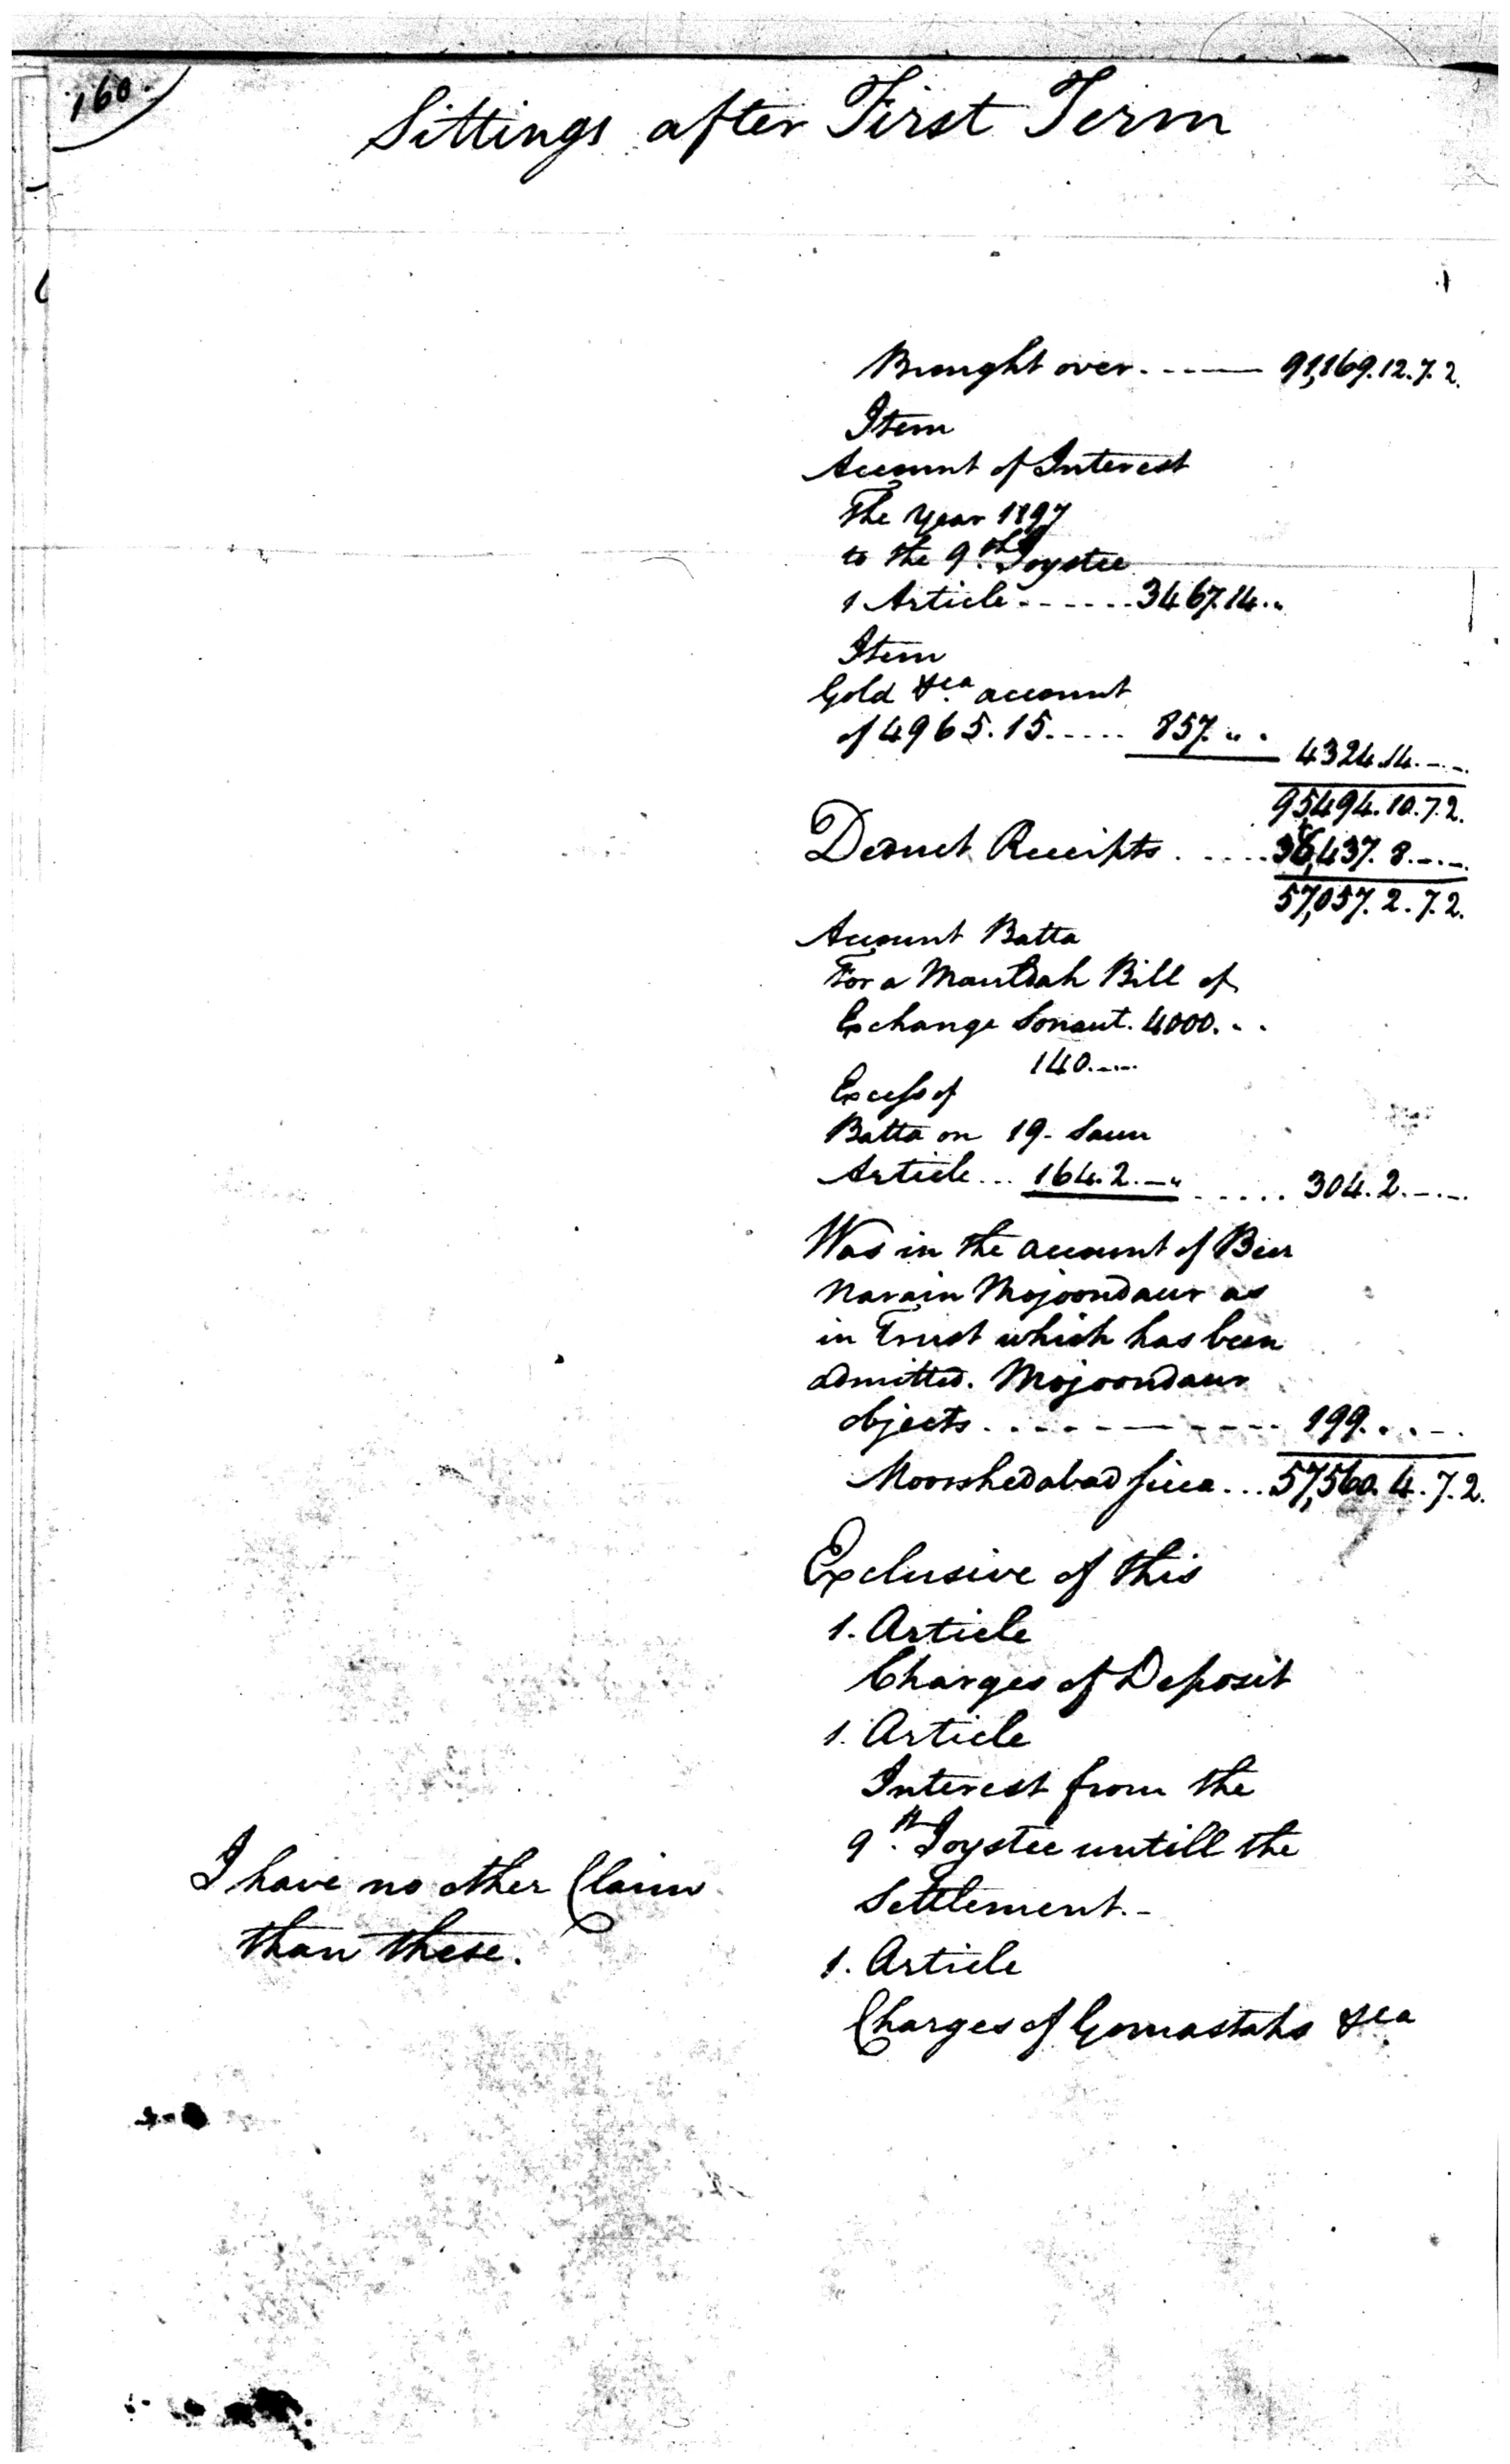 160.
Sittings after First Term
Brought over. - - - — 91,169.12.7.2.
Item
Account of Interest
The Year 1197
to the 9th. Joystee
1 Article - - - - - - 3467.14..
Item
Gold &ca. account
of 4965.15. - - - - 857. " .
4324.14. - . -.
95,494.10.7.2.
Deduct Receipts . . . . . 38,437.8. - . -.
57,057.2.7.2.
Account Batta
For a Mauldah Bill of
Exchange Sonaut. 4000. - .
140. - . -
Excess of
Batta on 19 - Saun
Article... 164.2. — " . . . . . 304.2. - . -.
Was in the account of Beer
Narain Mojoondaur as
in Trust which has been
admitted. Mojoondaur
objects. . . - - — - - - - 199. . . - .
Moorshedabad sicca... 57,560.4.7.2.
Exclusive of this
1. Article
Charges of Deposit
1. Article
Interest from the
9th. Joystee untill the
Settlement. -
I have no other Claim
than these.
1. Article
Charges of Gomastahs &ca.